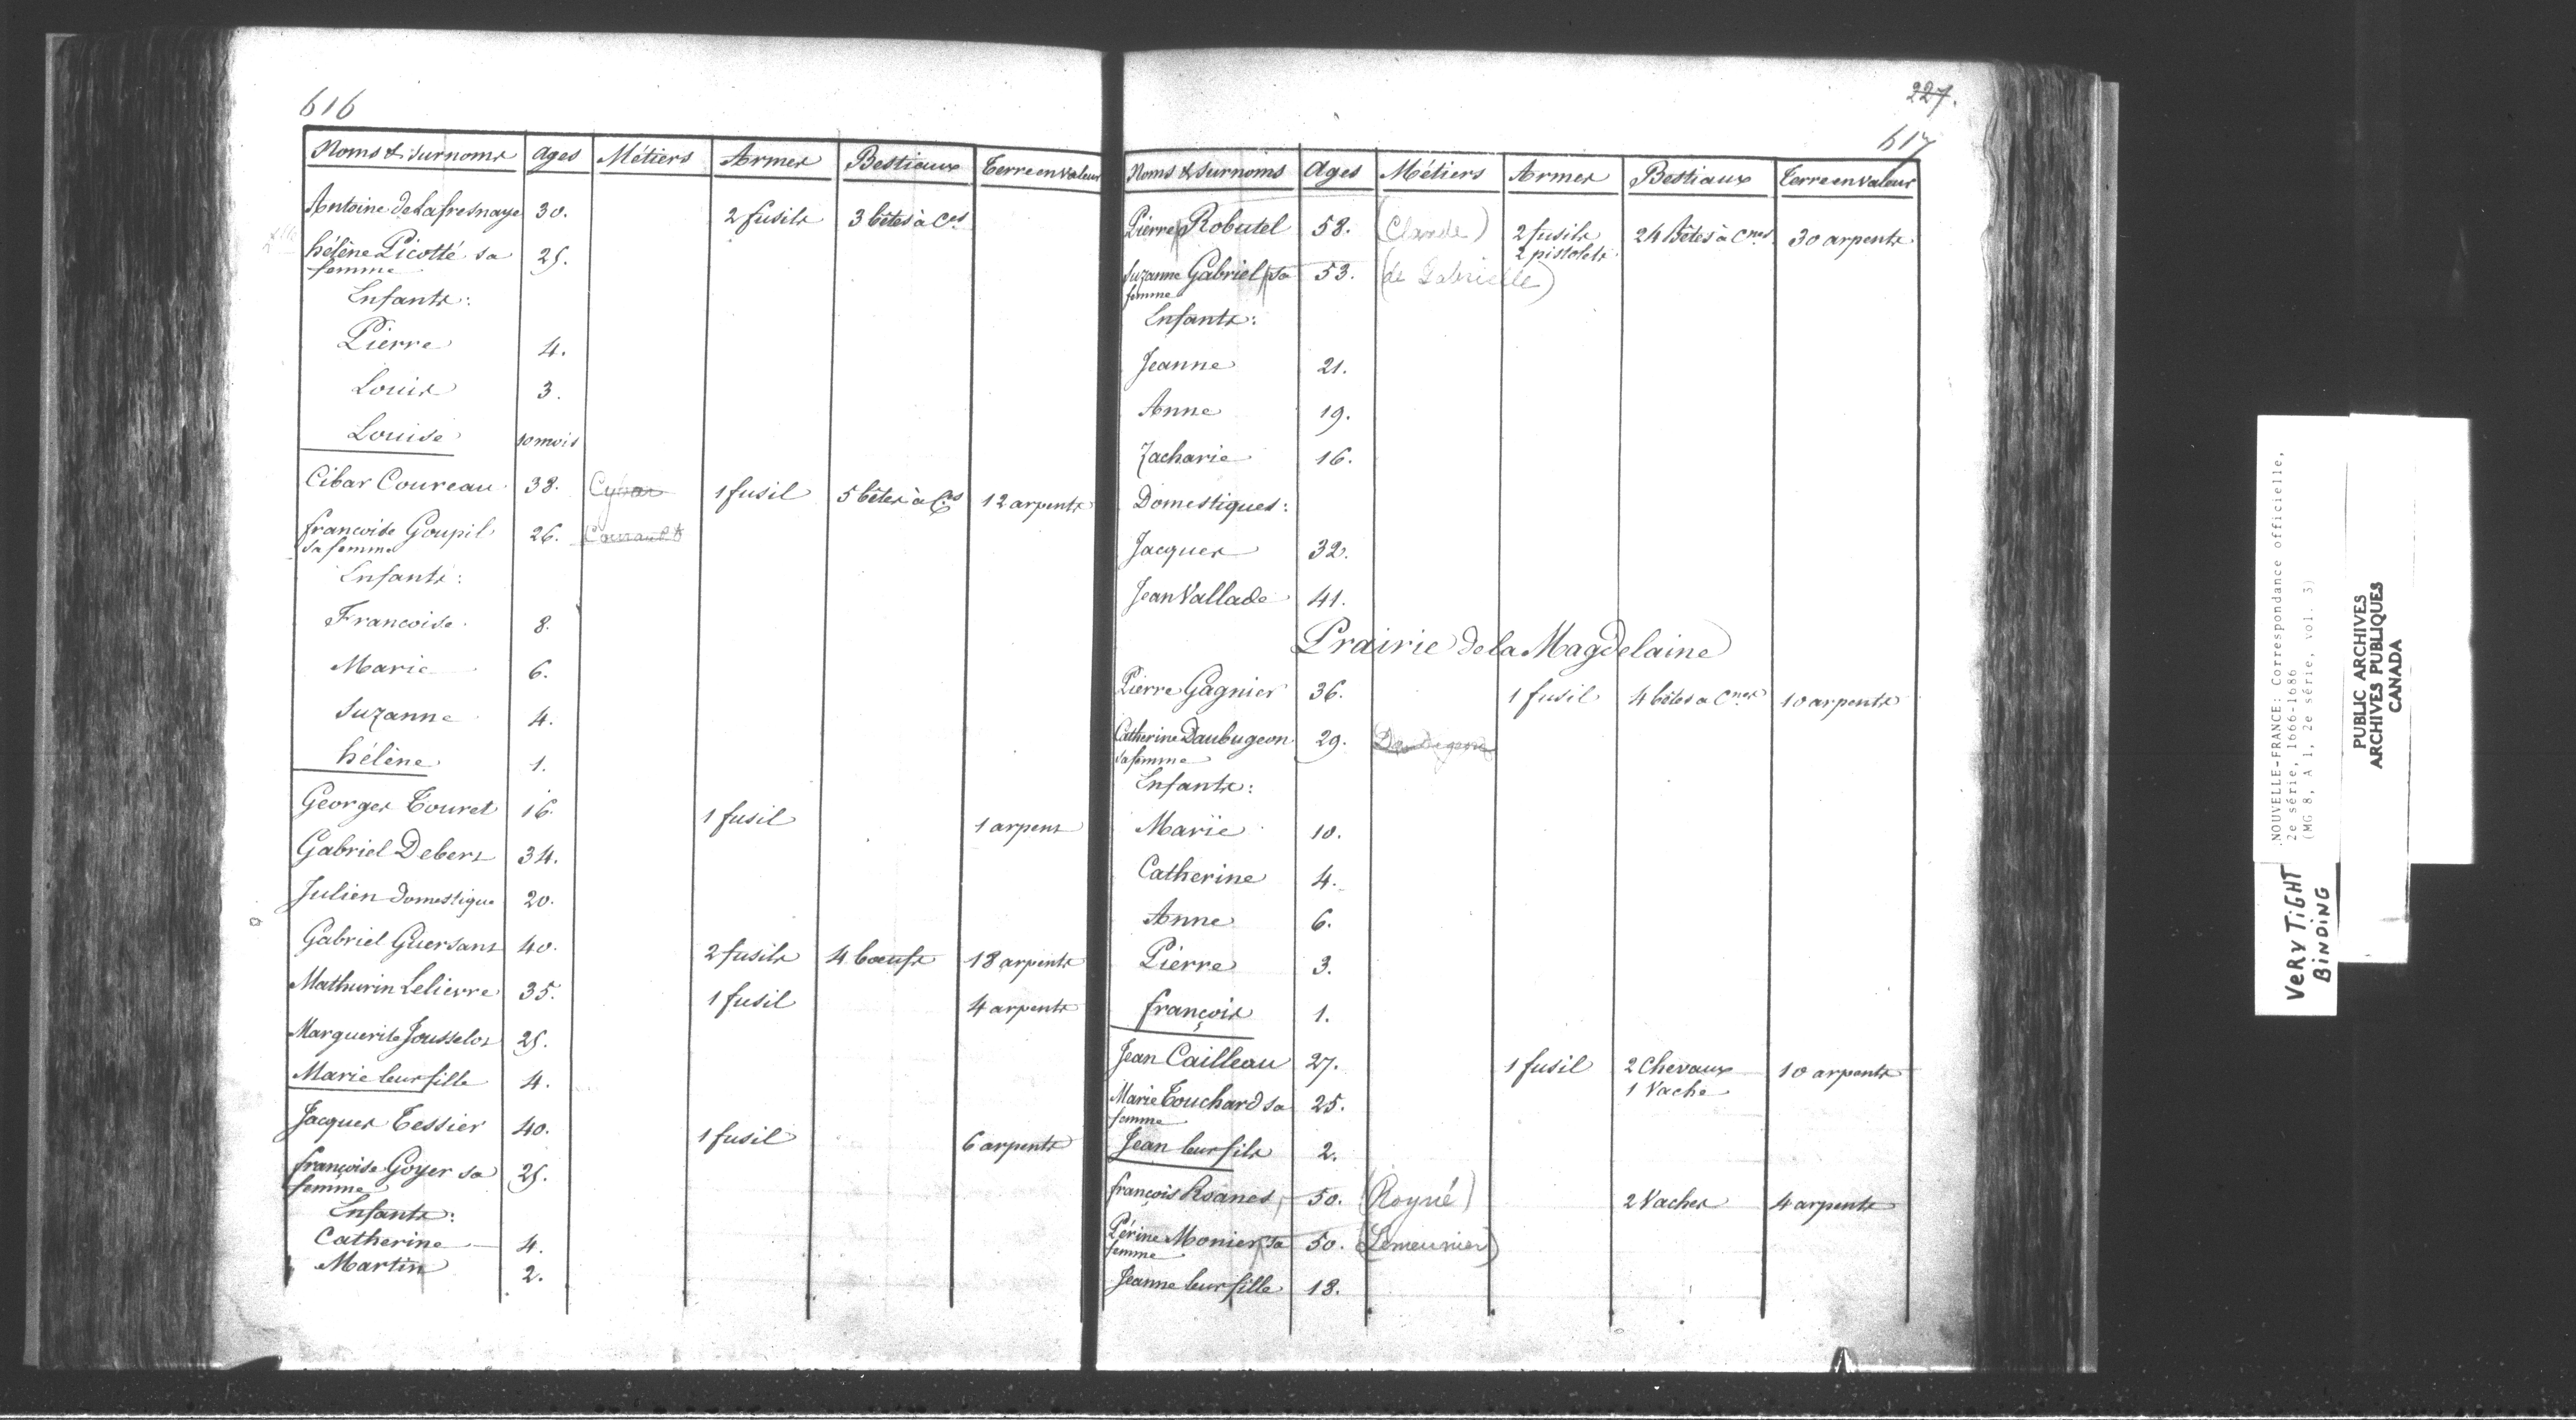 616
Noms & surnoms Ages Métiers Armes Bestiaux Terre en valeur
Antoine de Lafresnaye 30. 2 fusils 3 bêtes à Ces
hélène Picotté sa 25.
femme
Enfants:
Pierre 4.
Louis 3.
Louise 10 mois
Cibar Coureau 38. Cybar 1 fusil 5 bêtes à Ces 12 arpents
francoise Goupil 26. Courault
sa femme
Enfants:
Francoise 8.
Marie 6.
Suzanne 4.
hélène 1.
Georges Touret 16. 1 fusil 1 arpent
Gabriel Debert 34.
Julien domestique 20.
Gabriel Guersant 40. 2 fusils 4 boeufs 18 arpents
Mathurin Lelievre 35. 1 fusil 4 arpents
Marguerite Jousselot 25.
Marie leur fille 4.
Jacques Tessier 40. 1 fusil 6 arpents
françoise Goyer sa 25.
femme
Enfants:
Catherine 4.
Martin 2.
227.
617
Noms & surnoms Ages Métiers Armes Bestiaux Terre en valeur
Pierre Robutel 58. (Claude) 2 fusils 24 Bêtes à Cnes 30 arpents
2 pistolets
Suzanne Gabriel sa 53. (de Gabrielle)
femme
Enfants:
Jeanne 21.
Anne 19.
Zacharie 16.
Domestiques:
Jacques 32.
Jean Vallade 41.
Prairie de la Magdelaine
Pierre Gagnier 36. 1 fusil 4 bêtes a Cnes 10 arpents
Catherine Daubugeon 29.
sa femme
Enfants:
Marie 10.
Catherine 4.
Anne 6.
Pierre 3.
françois 1.
Jean Cailleau 27. 1 fusil 2 Chevaux 10 arpents
1 Vache
Marie Touchard sa 25.
femme
Jean leur fils 2.
françois Roanes 50. (Royné) 2 Vaches 4 arpents
Périne Monier sa 50. (Lemeunier)
femme
Jeanne leur fille 18.
NOUVELLE-FRANCE: Correspondance officielle,
2e série, 1666-1686
(MG 8, A 1, 2e série, vol. 3)
PUBLIC ARCHIVES
ARCHIVES PUBLIQUES
CANADA
VERY TIGHT
BINDING